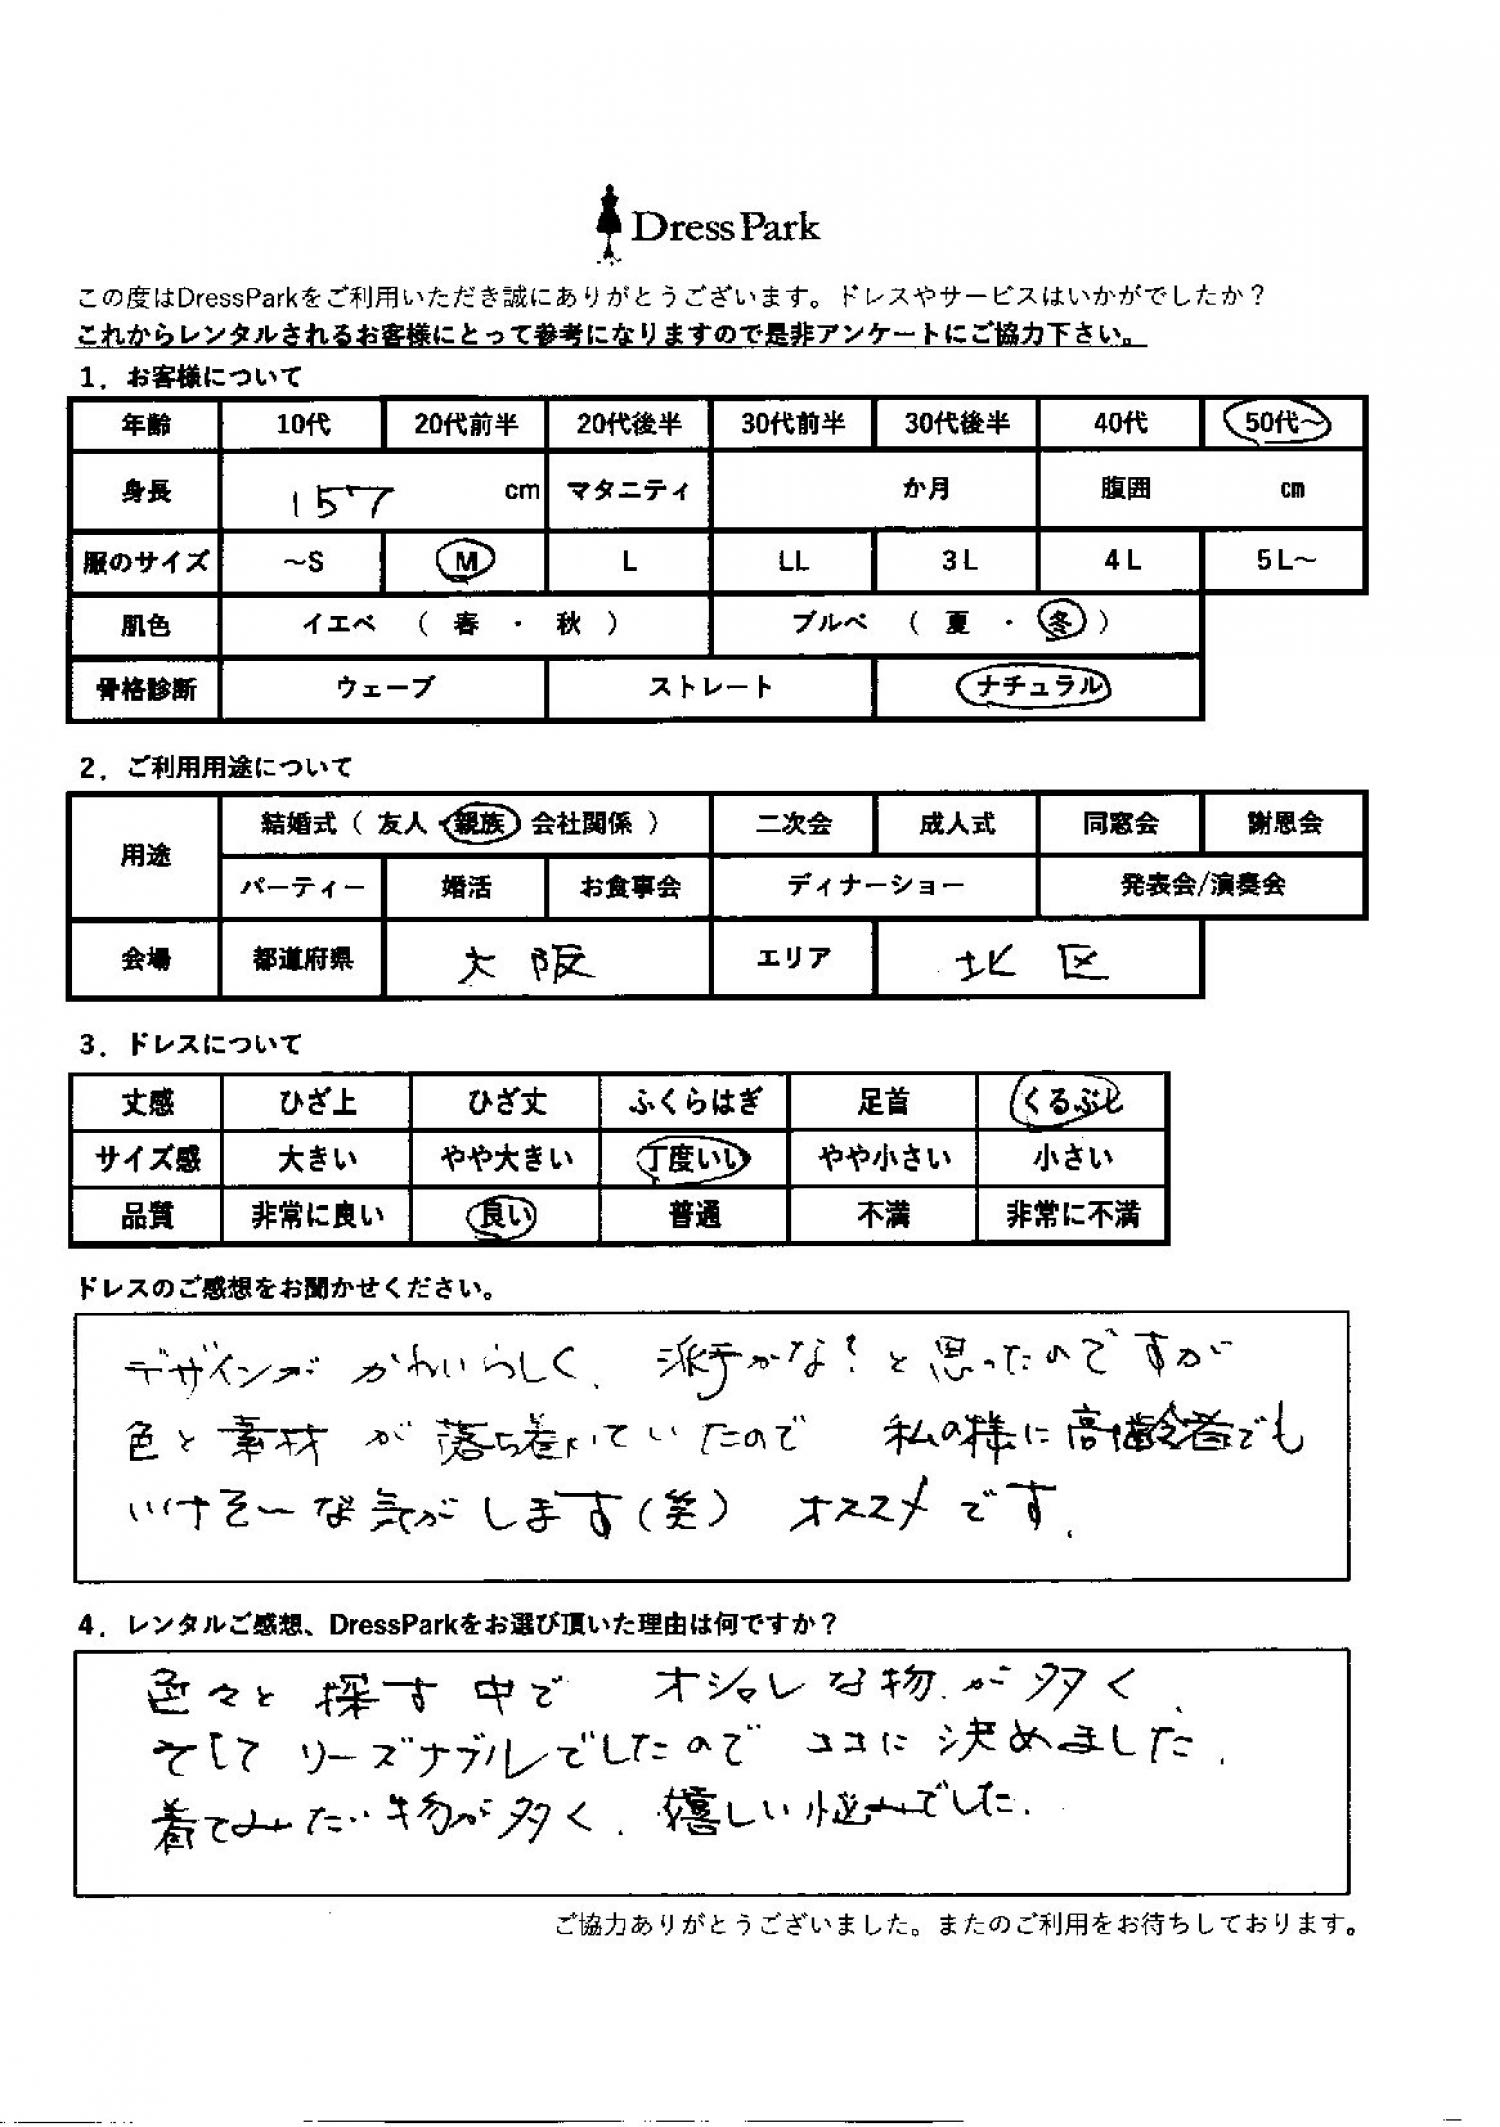 Dress Park
この度はDressParkをご利用いただき誠にありがとうございます。ドレスやサービスはいかがでしたか？
これからレンタルされるお客様にとって参考になりますので是非アンケートにご協力下さい。
1．お客様について
年齢 10代 20代前半 20代後半 30代前半 30代後半 40代 50代～
身長 157 cm マタニティ か月 腹囲 cm
服のサイズ ～S M L LL 3L 4L 5L～
肌色 イエベ （ 春 ・ 秋 ） ブルベ （ 夏 ・ 冬 ）
骨格診断 ウェーブ ストレート ナチュラル
2．ご利用用途について
用途 結婚式（ 友人・親族・会社関係 ） 二次会 成人式 同窓会 謝恩会
パーティー 婚活 お食事会 ディナーショー 発表会/演奏会
会場 都道府県 大阪 エリア 北区
3．ドレスについて
丈感 ひざ上 ひざ丈 ふくらはぎ 足首 くるぶし
サイズ感 大きい やや大きい 丁度いい やや小さい 小さい
品質 非常に良い 良い 普通 不満 非常に不満
ドレスのご感想をお聞かせください。
デザインが かわいらしく、派手かな？と思ったのですが
色と素材が落ち着いていたので 私の様に高齢者でも
いけそ〜な気がします（笑） オススメです。
4．レンタルご感想、DressParkをお選び頂いた理由は何ですか？
色々と探す中で オシャレな物が多く、
そしてリーズナブルでしたので ココに決めました。
着てみたい物が多く、嬉しい悩みでした。
ご協力ありがとうございました。またのご利用をお待ちしております。